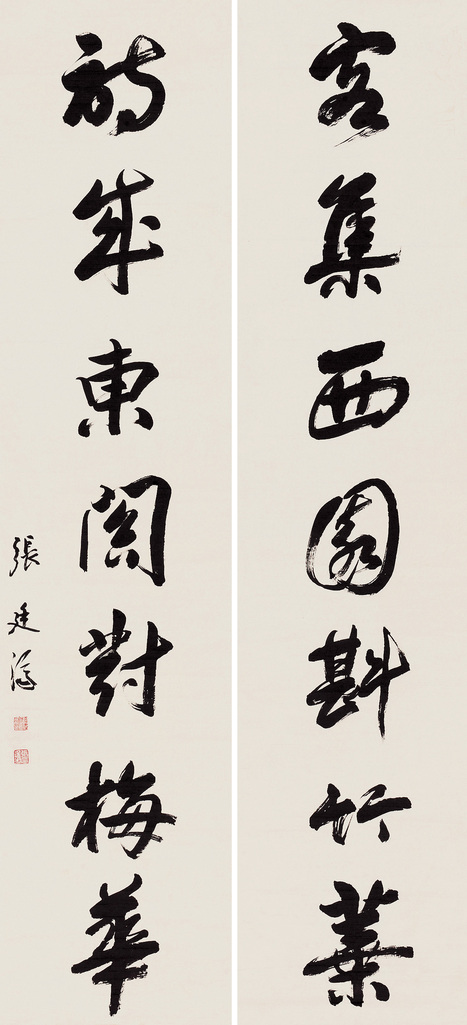 客集西園斟竹葉
詩成東閣對梅華
張廷濟